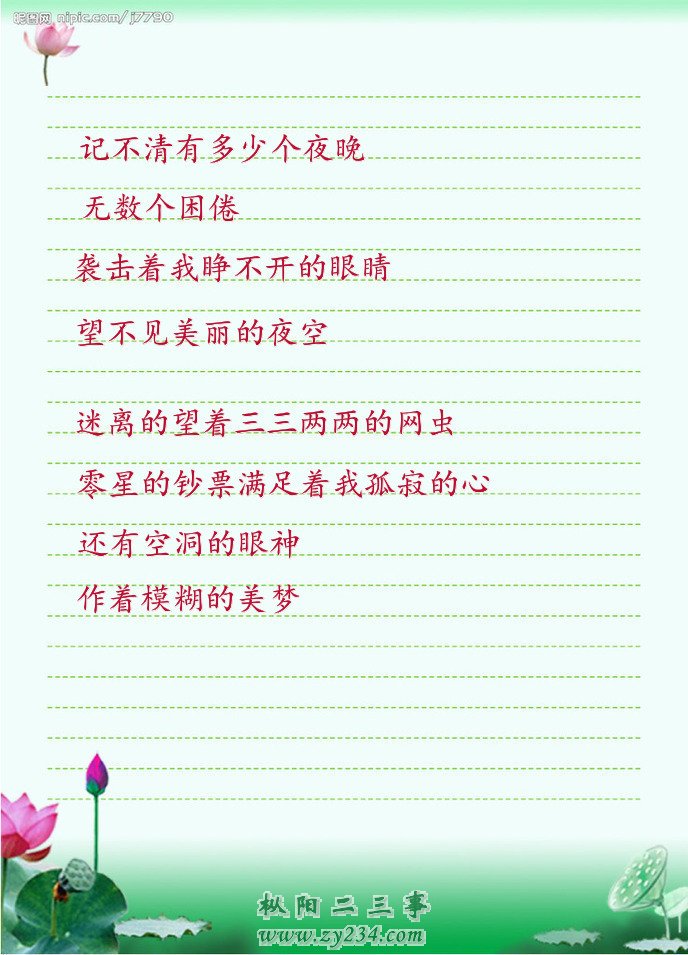 昵图网 nipic.com/j7790
记不清有多少个夜晚
无数个困倦
袭击着我睁不开的眼睛
望不见美丽的夜空
迷离的望着三三两两的网虫
零星的钞票满足着我孤寂的心
还有空洞的眼神
作着模糊的美梦
枞阳二三事
www.zy234.com